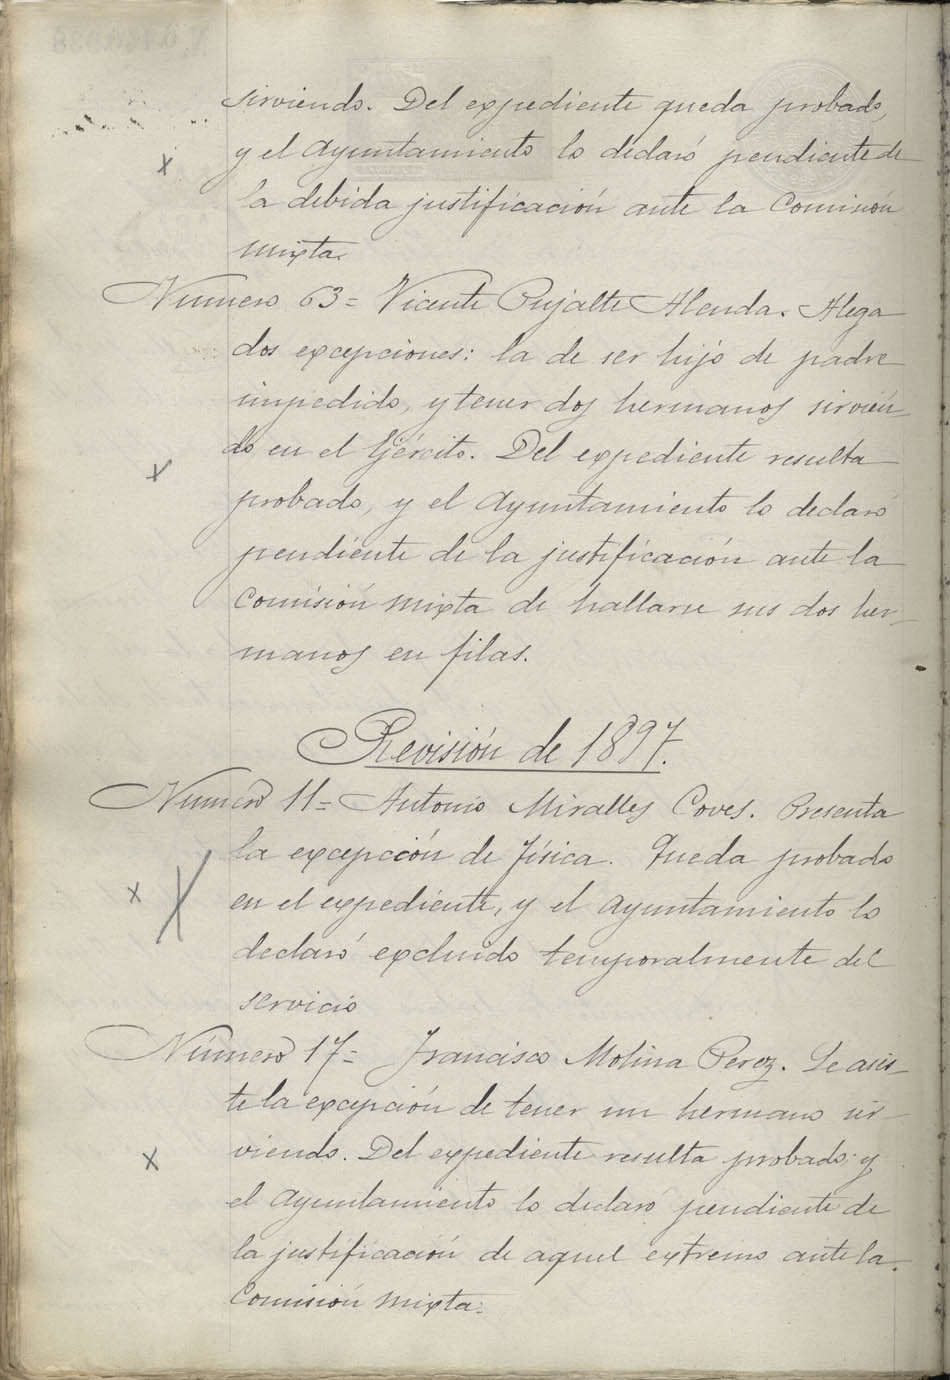 sirviendo. Del expediente queda probado,
y el Ayuntamiento lo declaró pendiente de
la debida justificación ante la Comisión
mixta.
Número 63= Vicente Pujalte Alenda. Alega
dos excepciones: la de ser hijo de padre
impedido, y tener dos hermanos sirvien-
do en el Ejército. Del expediente resulta
probado, y el Ayuntamiento lo declaró
pendiente de la justificación ante la
Comisión mixta de hallarse sus dos her-
manos en filas.
Revisión de 1897.
Número 11= Antonio Miralles Coves. Presenta
la excepción de física. Queda probado
en el expediente, y el Ayuntamiento lo
declaró excluido temporalmente del
servicio
Número 17= Francisco Molina Perez. Le asis-
te la excepción de tener un hermano sir-
viendo. Del expediente resulta probado; y
el Ayuntamiento lo declaró pendiente de
la justificación de aquel extremo ante la
Comisión mixta.